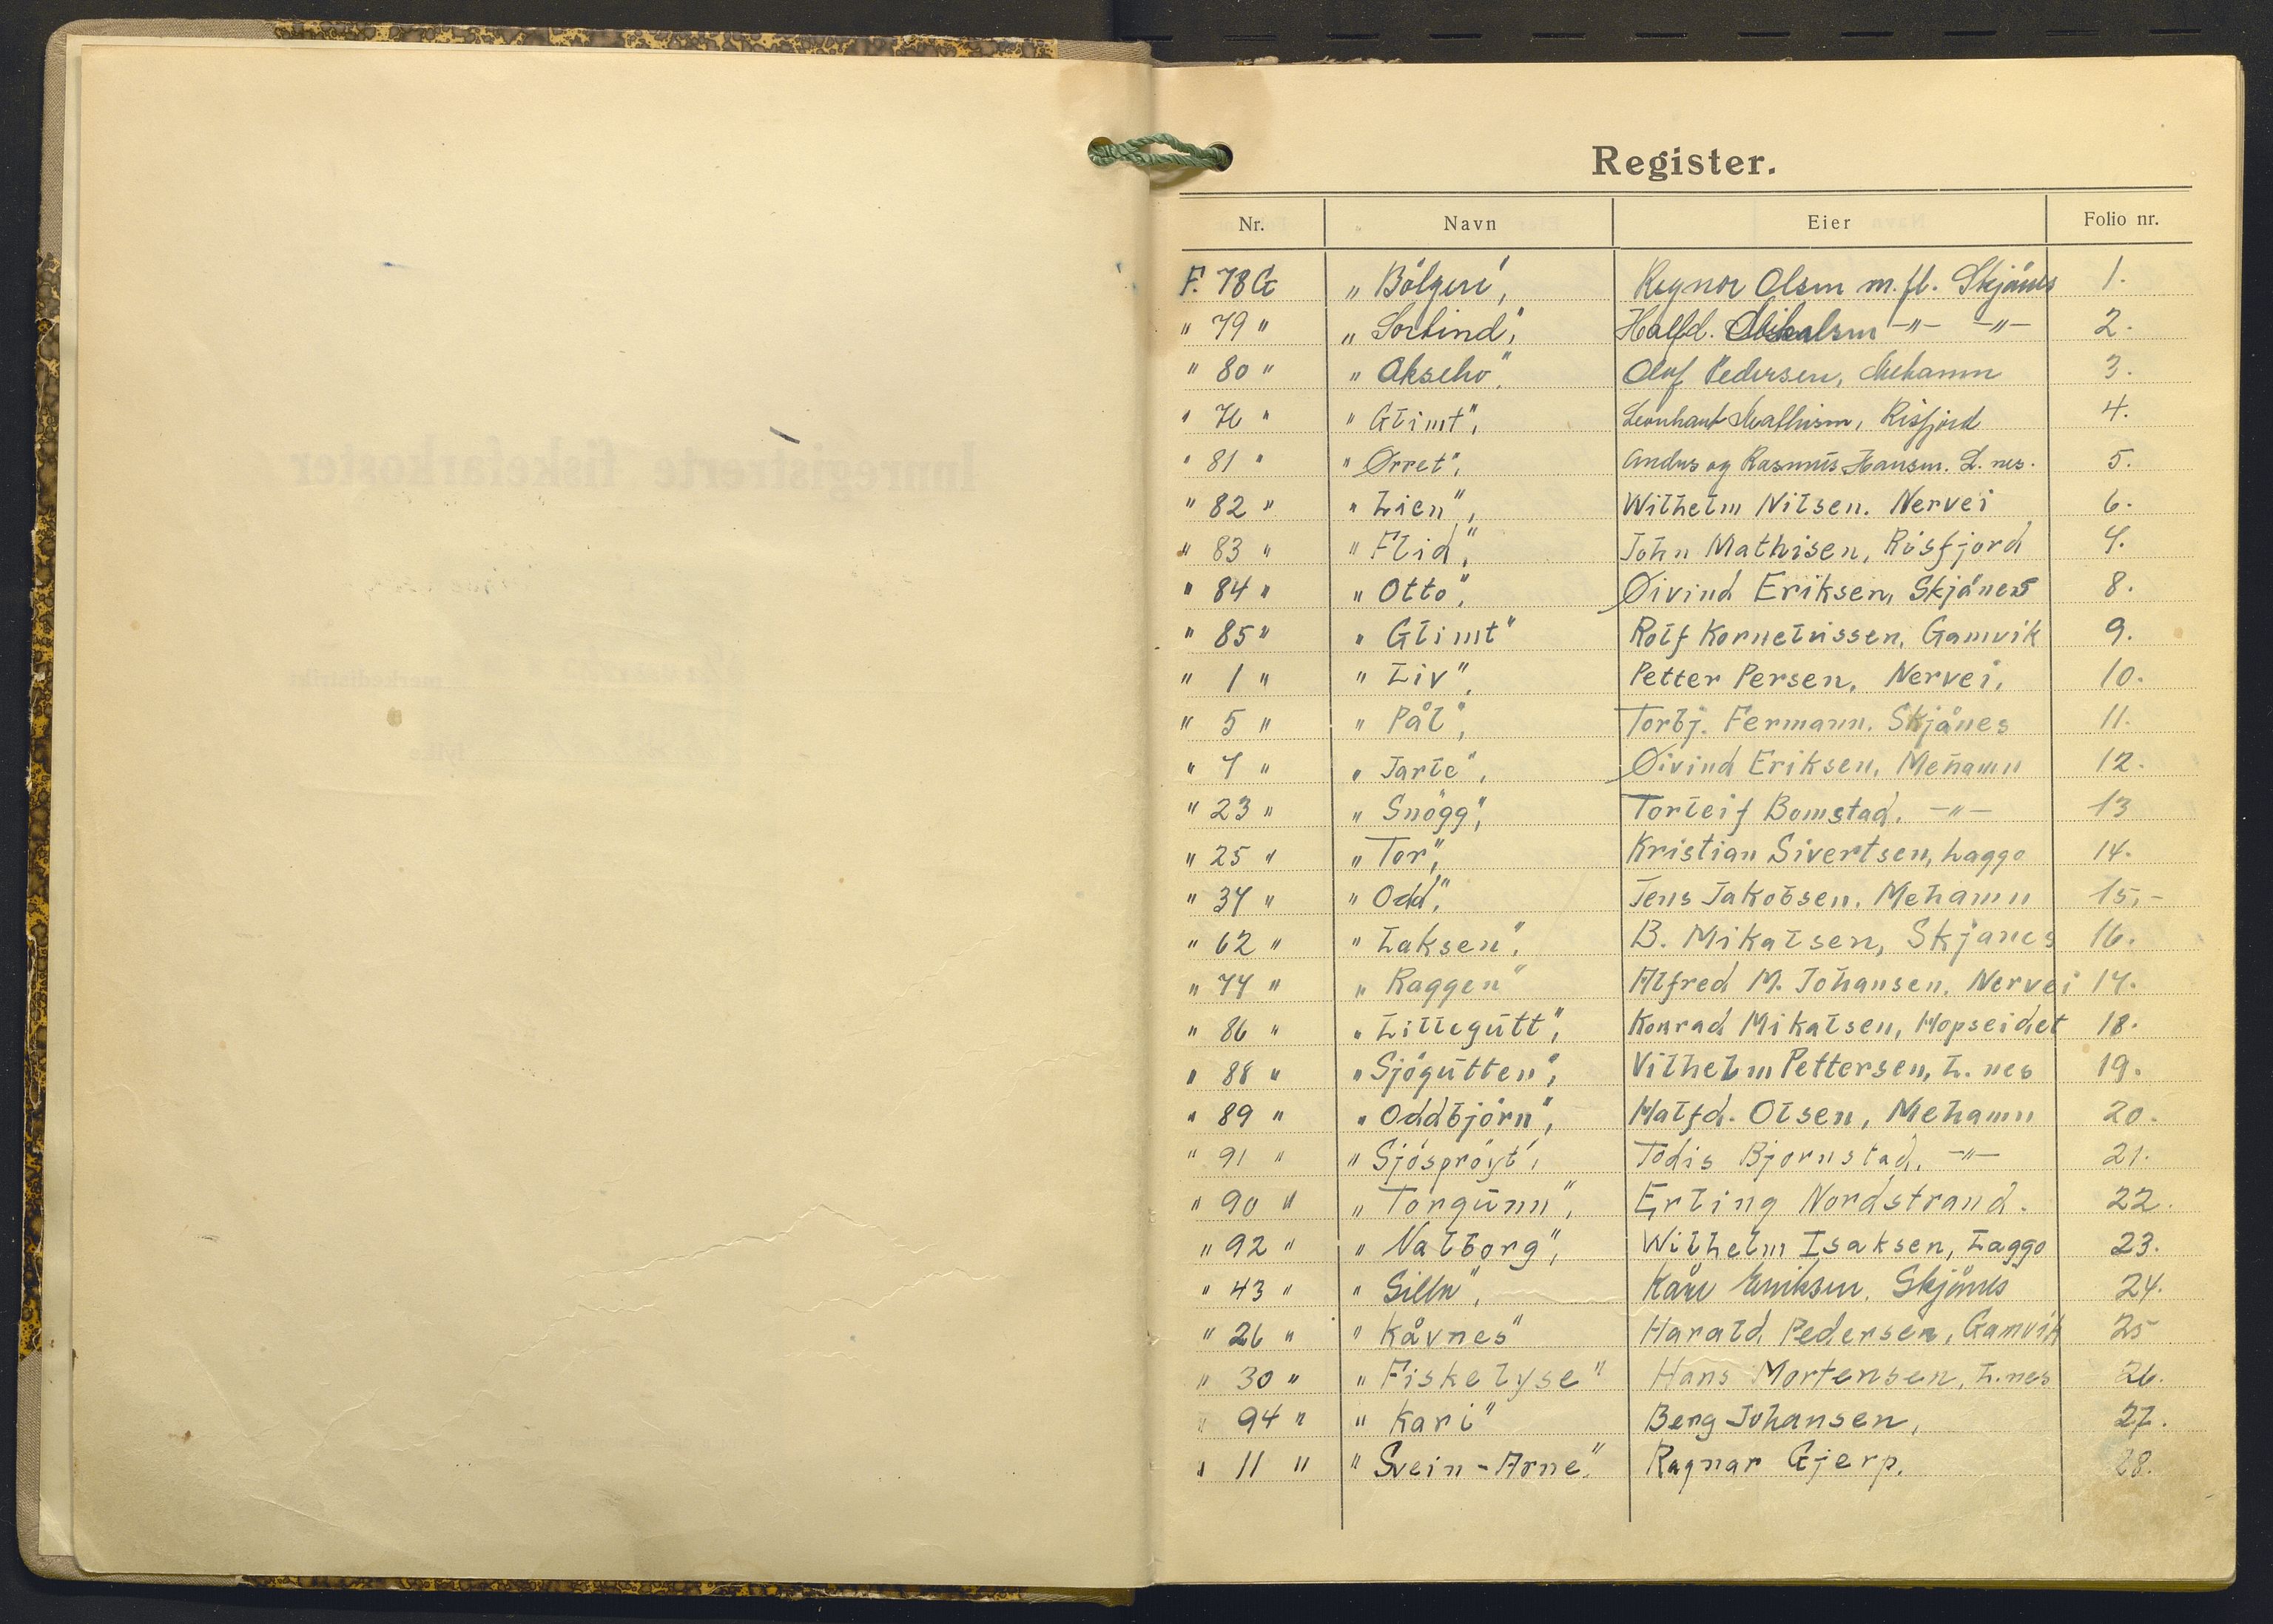 Register.
Nr. Navn Eier Folio nr.
F. 78 G „Bölgen", Ragnar Olsen m. fl. Skjånes 1.
" 79 " „Sortind", Halfd. Mikalsen -"- -"- 2.
" 80 " „Akselso". Olaf Pedersen, Mehamn 3.
" 76 " „Glimt", Leonhart Mathisen, Risfjord 4.
" 81 " „Ørret", Anders og Rasmus Hansen. L. nes. 5.
" 82 " „Lien", Wilhelm Nilsen. Nervei 6.
" 83 " „Flid", John Mathisen, Risfjord 7.
" 84 " „Otto", Øivind Eriksen, Skjånes 8.
" 85 " „Glimt" Rolf Korneliussen, Gamvik 9.
" 1 " „Liv", Petter Persen, Nervei, 10.
" 5 " „Pål", Torbj. Fermann, Skjånes 11.
" 7 " „Jarle", Øivind Eriksen, Mehamn 12.
" 23 " „Snögg", Torleif Bomstad. -"- 13
" 25 " „Tor", Kristian Sivertsen, Laggo 14.
" 37 " „Odd", Jens Jakobsen, Mehamn 15.-
" 62 " „Laksen", B. Mikalsen, Skjånes 16.
" 77 " „Raggen" Alfred M. Johansen, Nervei 17.
" 86 " „Lillegutt", Konrad Mikalsen, Hopseidet 18.
" 88 " „Sjögutten", Vilhelm Pettersen, L. nes 19.
" 89 " „Oddbjörn", Halfd. Olsen, Mehamn 20.
" 91 " „Sjöspröyt", Todis Bjornstad, -"- 21.
" 90 " „Torgunn", Erling Nordstrand. 22.
" 92 " „Valborg", Wilhelm Isaksen, Laggo 23.
" 43 " „Silln", Kåre Eriksen, Skjånes 24.
" 26 " „Kåvnes" Harald Pedersen, Gamvik 25
" 30 " „Fiskelyse" Hans Mortensen, L.nes 26.
" 94 " „Kari" Berg Johansen, 27.
" 11 " „Svein-Arne". Ragnar Gjerp. 28.